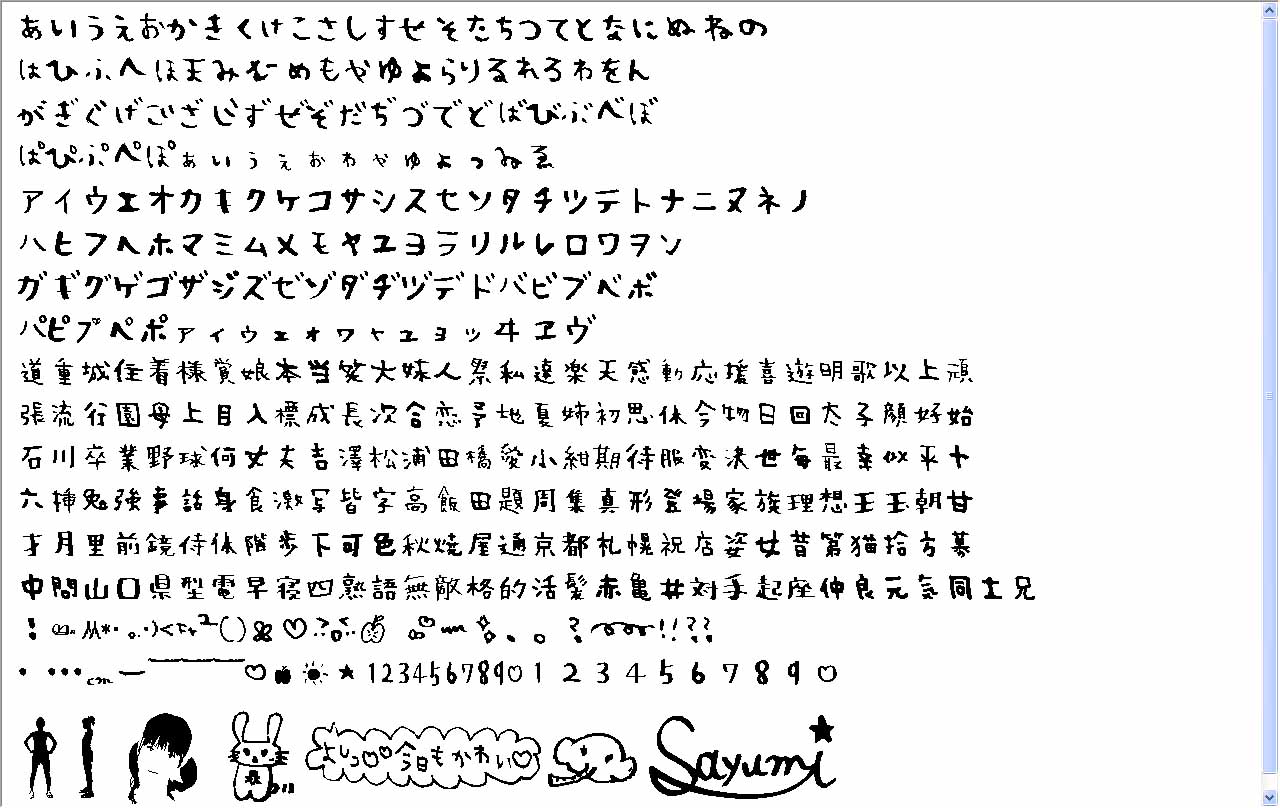 あいうえおかきくけこさしすせそたちつてとなにぬねの
はひふへほまみむめもやゆよらりるれろわをん
がぎぐげござじずぜぞだぢづでどばびぶべぼ
ぱぴぷぺぽぁぃぅぇぉゎゃゅょっゐゑ
アイウエオカキクケコサシスセソタチツテトナニヌネノ
ハヒフヘホマミムメモヤユヨラリルレロワヲン
ガギグゲゴザジズゼゾダヂヅデドバビブベボ
パピプペポァィゥェォヮャュョッヰヱヴ
道重城住着様覚娘本当笑大妹人祭私達楽天感動応援喜遊明歌以上頑
張流行園母上目入標成長次合恋予地夏姉初思休今物日回犬子顔好始
石川卒業野球何丈夫吉澤松浦田橋愛小紺期待服変決世毎最幸似平十
六挿勉強事話身食激写皆字高飯田題周集真形登場家族理想王玉朝甘
才月里前鏡侍体階歩下可色秋焼屋通京都札幌祝店姿女昔第猫拾方募
中間山口県型電早寝四熟語無敵格的活髪赤亀井対手起座仲良元気同士兄
()♡ ? !!??
・ ・・・cm ー ♡ ★ 1234567890 1 2 3 4 5 6 7 8 9 0
よしっ♡♡今日もかわいい♡
Sayumi